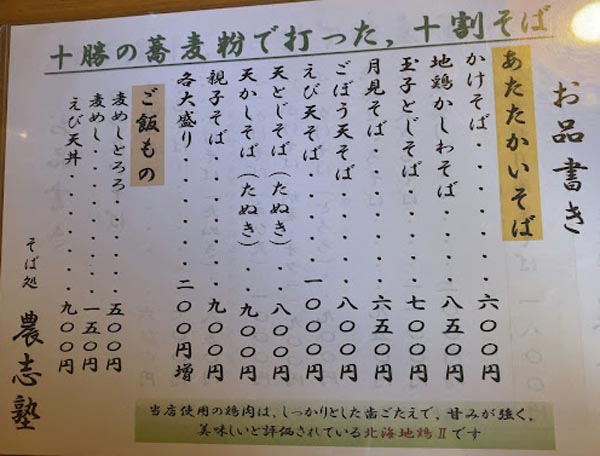 十勝の蕎麦粉で打った，十割そば
お品書き
あたたかいそば
かけそば・・・・・・六〇〇円
地鶏かしわそば・・・・八五〇円
玉子とじそば・・・・・七〇〇円
月見そば・・・・・・六五〇円
ごぼう天そば・・・・・八〇〇円
えび天そば・・・・・一〇〇〇円
天とじそば（たぬき）・・八〇〇円
天かしそば（たぬき）・・九〇〇円
親子そば・・・・・・九〇〇円
各大盛り・・・・・・二〇〇円増
ご飯もの
麦めしとろろ・・・・・五〇〇円
麦めし・・・・・・・一五〇円
えび天丼・・・・・・九〇〇円
そば処 農志塾
当店使用の鶏肉は、しっかりとした歯ごたえで、甘みが強く。
美味しいと評価されている北海地鶏Ⅱです